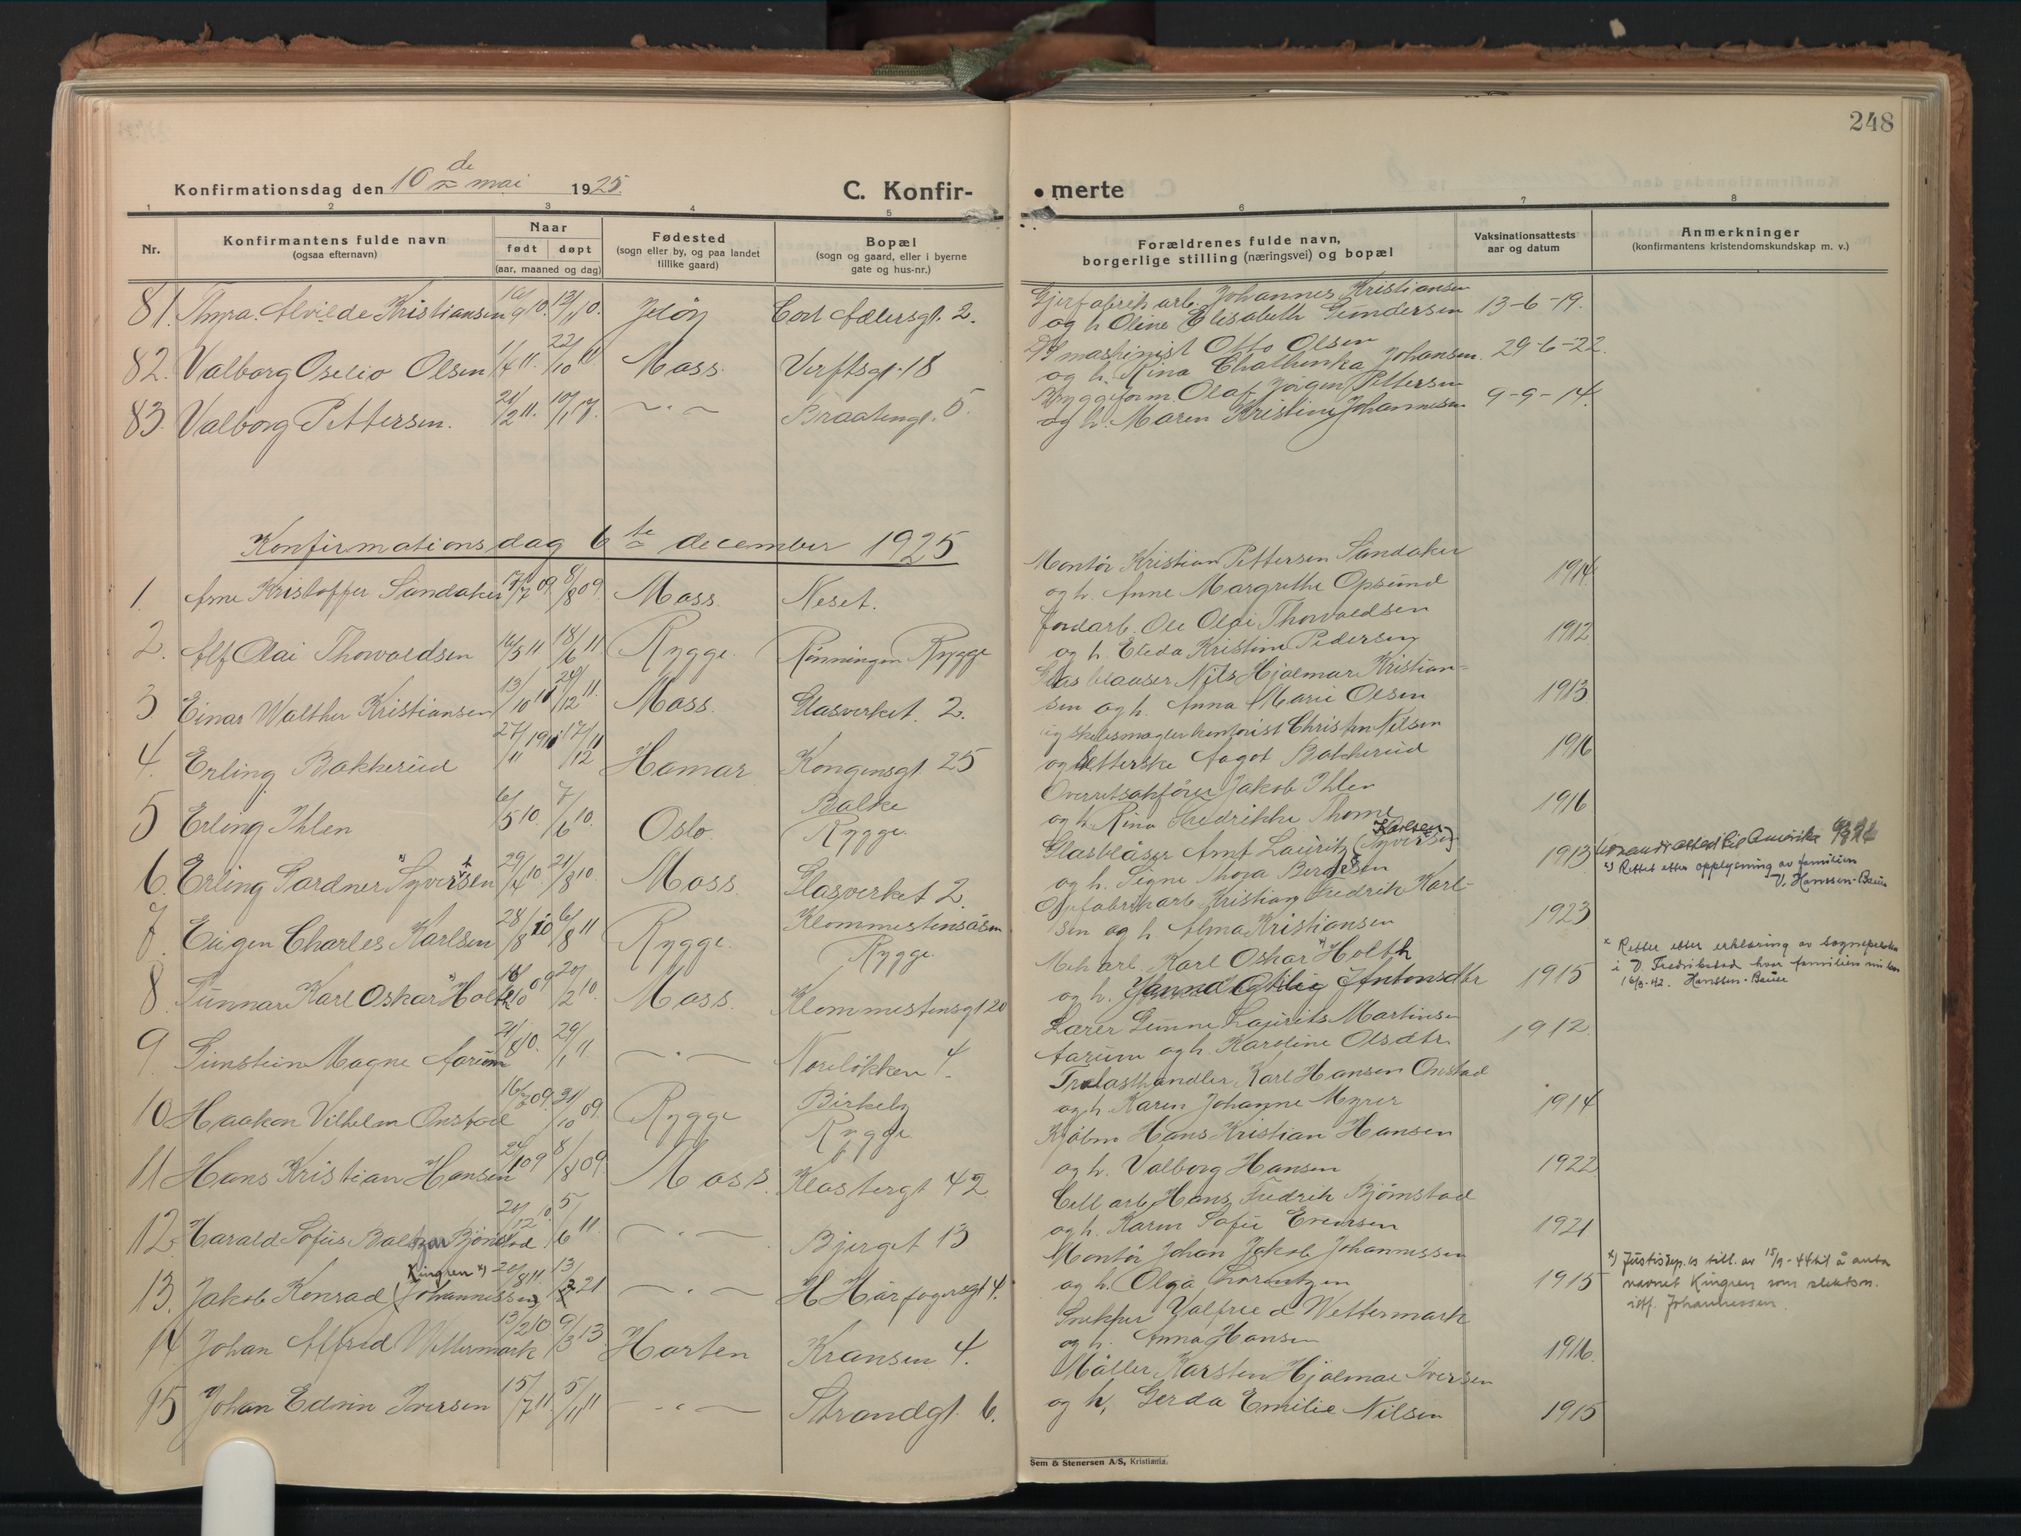 248
Konfirmationsdag den 10de mai 1925.
C. Konfir-
merte
1 2 3 4 5 6 7 8
Nr.
Konfirmantens fulde navn
(ogsaa efternavn)
Naar
født døpt
(aar, maaned og dag)
Fødested
(sogn eller by, og paa landet
tillike gaard)
Bopæl
(sogn og gaard, eller i byerne
gate og hus-nr.)
Forældrenes fulde navn,
borgerlige stilling (næringsvei) og bopæl
Vaksinationsattests
aar og datum
Anmerkninger
(konfirmantens kristendomskundskap m. v.)
81. Thyra Alvilde Kristiansen Jeløy Cort Adlersgt. 2.
Gjerfabrikarb. Johannes Kristiansen
og h. Oline Elisabeth Gundersen 13-6-19.
82. Valborg Oselio Olsen 1/4 11. 22/10 11 Moss. Verftsgt. 18
maskinist Otto Olsen
og h. Rina Johansen. 29-6-22.
83. Valborg Pettersen. 21/2 11. — " — Braatengt. 5.
Bryggeform. Olaf Jørgen Pettersen
og h. Maren Kristine Johannesen 9-9-14.
Konfirmationsdag 6te december 1925
1. Arne Kristoffer Sandaker 17/7 09 8/8 09. Moss. Neset.
Montør Kristian Pettersen Sandaker
og h. Anne Margrethe Opsund 1914.
2. Alf Olai Thorvaldsen 16/3 11 18/6 11 Rygge. Rønningen Rygge
Jordarb. Ole Olai Thorvaldsen
og h. Eleda Kristine Pedersen 1912
3 Einar Walther Kristiansen 13/10 11 26/12 11. Moss. Glasverket. 2.
Glasblaaser Nils Hjalmar Kristian-
sen og h. Anna Marie Olsen 1913
4. Erling Bakkerud 27/11 1911 17/12 11 Hamar Kongensgt 25
skibsmægler kontorist Christen Nilsen
og Aagot Bakkerud 1916
5 Erling Ihlen 6/5 10. 7/6 10. Oslo. Balke
Rygge.
Overretssakfører Jakob Ihlen
og h. Rina Fredrikke Thorne 1916
6. Erling Gardner x) Syversen 29/4 10. 21/8 10. Moss. Glasverket 2.
Karlsen
Glasblåser Arnt Lauritz (Syversen)
og h. Signe Thora Berntsen 1913
til Amerika
x) Rettet etter opplysning av familien
V. Hanssen-Bauer
7. Eugen Charles Karlsen 28/8 10 6/8 11 Rygge. Klommestensåsen
Rygge.
Kristian Fredrik Karl-
sen og h. Alma Kristiansen 1923
8 Gunnar Karl Oskar x) Holth 09 20/2 10. Moss Klommestensgt 20
Mek. arb. Karl Oskar x) Holth
og h. Janna Otilie Antonsdtr 1915
x Rettet etter erklæring av sognepresten
i V. Fredrikstad hvor familien
16/3-42. Hanssen-Bauer
9. Gunstein Magne Aarum 21/8 10. 29/1 11. — " — Noreløkken 4.
Lærer Gunne Laurits Martinsen
Aarum og h. Karoline Olsdtr. 1912.
10 Haakon Vilhelm Onstad 09. 31/10 09. Rygge Birkely
Rygge
Trelasthandler Karl Hansen Onstad
og h. Karen Johanne Myrer 1914
11 Hans Kristian Hansen 24/1 09 8/8 09. Moss. Klostergt 42
Kjøbm Hans Kristian Hansen
og h. Valborg Hansen 1922
12. Harald Sofus Baltzar Bjørnstad. 20/12 10. 5/6 11. — " — Bjerget 13
Cell. arb. Hans Fredrik Bjørnstad
og h. Karen Sofie Evensen 1921
Kingren x)
13. Jakob Konrad (Johannessen) 20/8 11. 13/ 21 — " — H Hårfagersgt 4.
Montør Johan Jakob Johannessen
og h. Olga Lorentzen 1915
x) Justisdep.'s till. av 15/9-44 til å anta
navnet Kingren som slektsn.
istf. Johannessen.
14. Johan Alfred Wettermark 13/2 10 9/3 13 Horten Kransen 4.
Snekker Valfried Wettermark
og h. Anna Hansen 1916.
15 Johan Edvin Iversen 15/7 11 5/11 11 — " — Strandgt. 6.
Møller Karsten Hjalmar Iversen
og h. Gerda Emilie Nilsen 1915
Sem & Stenersen A/S, Kristiania.